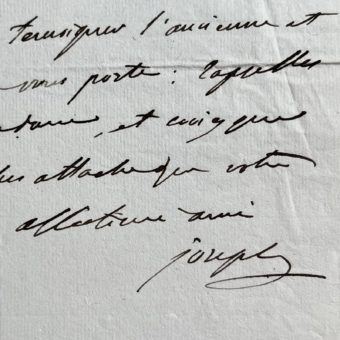 temoigner l'ancienne et
vous porte : rappelles
dame, et croiez que
plus attaché que votre
affectionné ami
joseph